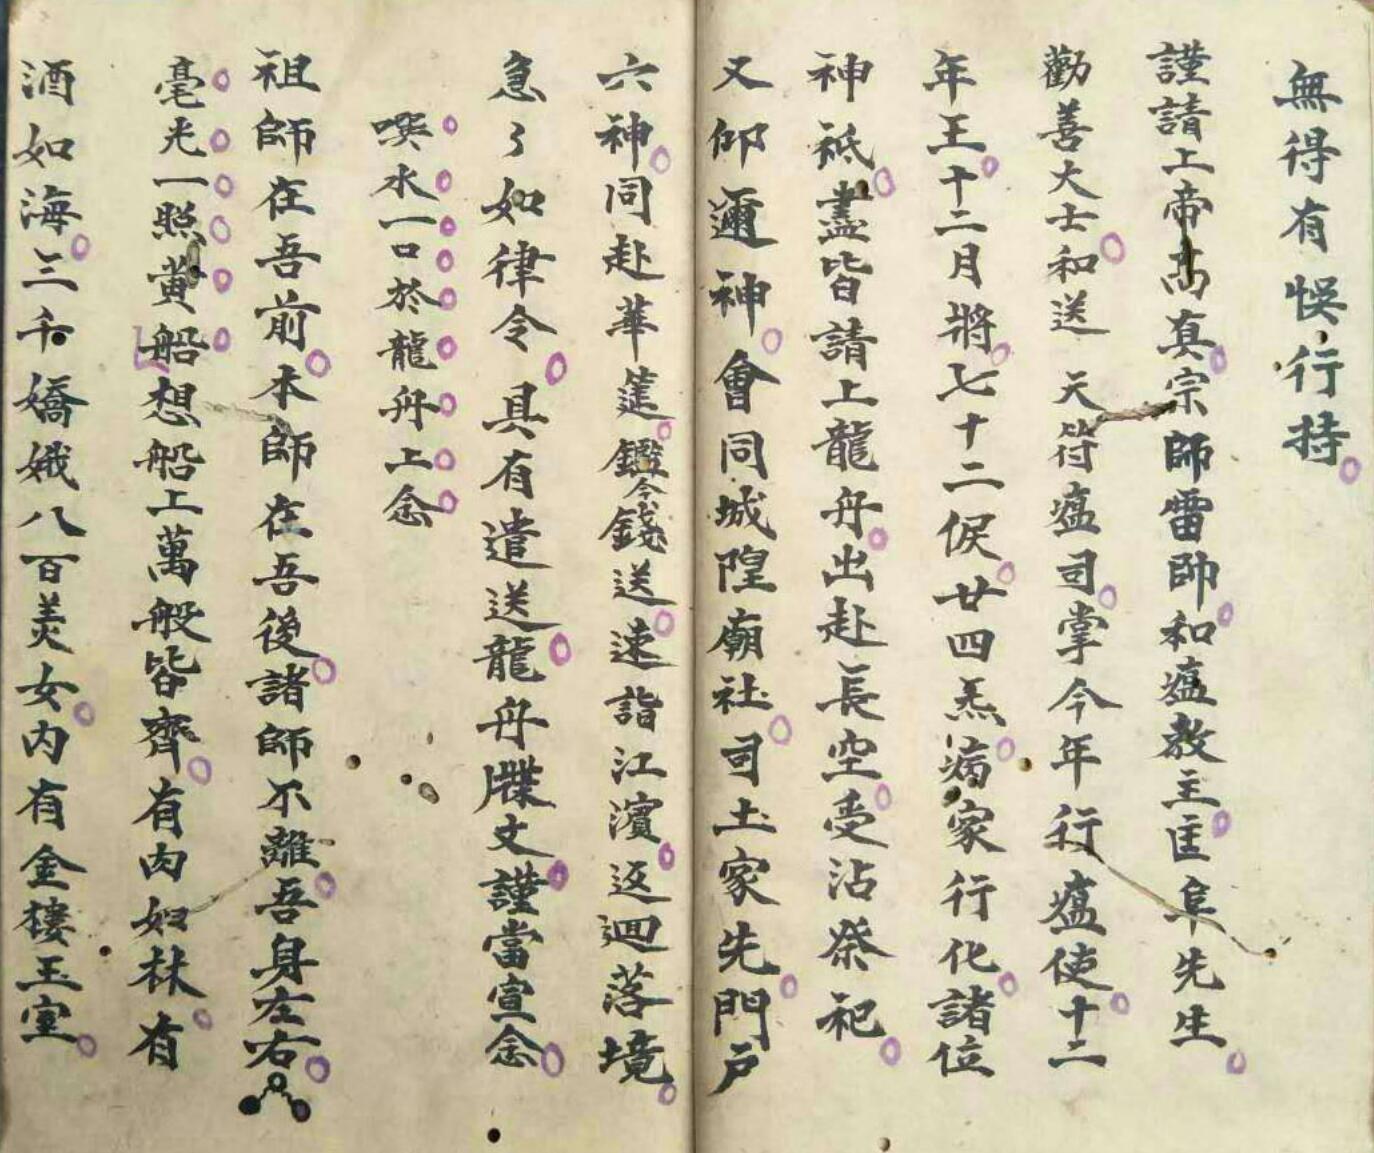 無得有悞行持
謹請上帝高真宗師雷帥和瘟教主匡阜先生
勸善大士和送天符瘟司掌今年行瘟使十二
年王十二月將七十二候廿四炁病家行化諸位
神祇盡皆請上龍舟出赴長空受沾祭祀
又仰邇神會同城隍廟社司土家先門戶
六神同赴華筵鑑今錢送速詣江濱返迴落境
急々如律令具有遣送龍舟牒文謹當宣念
噀水一口於龍舟上念
祖師在吾前本師在吾後諸師不離吾身左右
毫光一照黄船想船上萬般皆齊有肉如林有
酒如海三千嬌娥八百美女内有金樓玉室